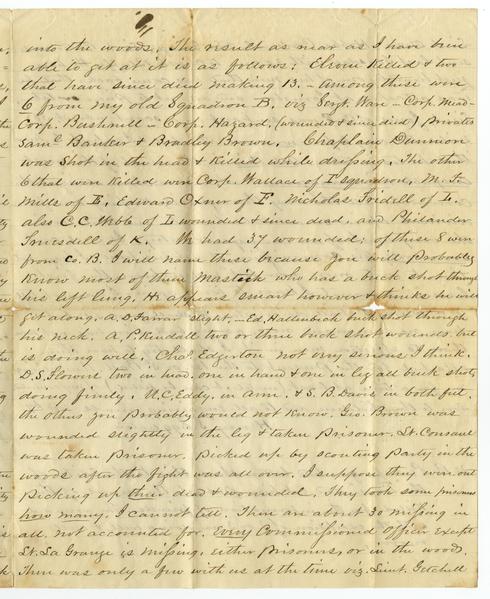 into the woods. The result as near as I have been
able to get at it is as follows: Eleven Killed & two
that have since died making 13. - Among these were
6 from my old Squadron B. viz Sergt. Ware - Corp. Mead -
Corp. Bushnell - Corp. Hazard, (wounded & since died) Privates
Saml. Banker & Bradley Brown. Chaplain Dunmore
was shot in the head & killed while dressing. The other
6 that were killed were Corp. Wallace of I squadron, M. F.
Mills of E, Edward Oxner of F. Nicholas Tridell of L.
also C.C. Webb of L wounded & since dead, and Philander
Truesdell of K. We had 37 wounded; of these 8 were
from Co. B. I will name these because you will probably
Know most of them Mastick who has a buck shot through
his left lung. He appears smart however & thinks he will
get along. A. D. Farrar slight, - Ed. Hallenbeck buck shot through
his neck. A. P. Kendall two or three buck shot wounds but
is doing well. Chas. Edgerton not very serious I think.
D. S. Flowers two in head, one in hand & one in leg all buck shots,
doing finely. U. C. Eddy, in arm. & S. B. Davis in both feet.
the others you probably would not Know. Geo. Brown was
wounded slightly in the leg & taken prisoner. Lt. Consaul
was taken prisoner. Picked up by scouting party in the
woods after the fight was all over. I suppose they were out
picking up their dead & wounded. They took some prisoners
how many. I cannot tell. There are about 30 missing in
all. not accounted for. Every Commissioned Officer except
Lt. La Grange is missing, either prisoners, or in the woods.
There was only a few with us at the time viz. Lieut. Getchell